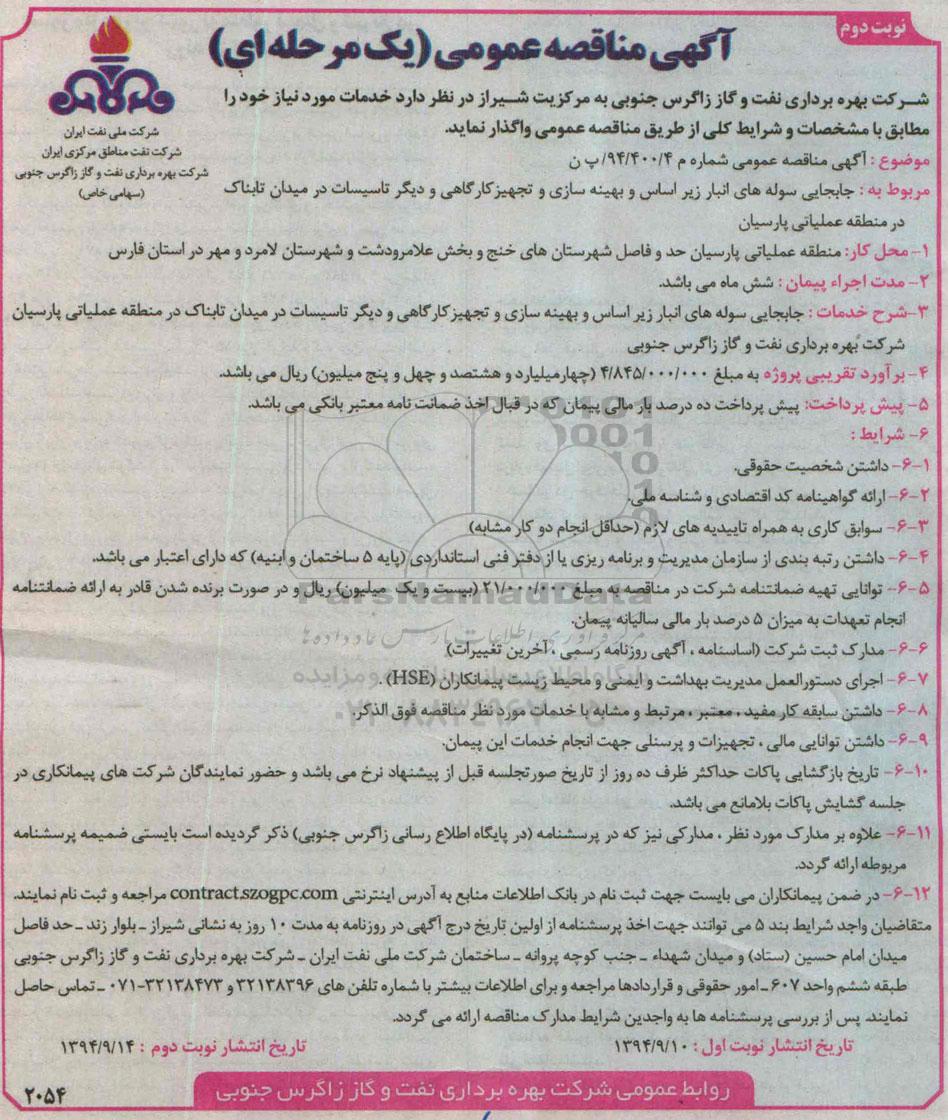 نوبت دوم
آگهی مناقصه عمومی (یک مرحله ای)
شرکت ملی نفت ایران
شرکت نفت مناطق مرکزی ایران
شرکت بهره برداری نفت و گاز زاگرس جنوبی
(سهامی خاص)
شرکت بهره برداری نفت و گاز زاگرس جنوبی به مرکزیت شیراز در نظر دارد خدمات مورد نیاز خود را
مطابق با مشخصات و شرایط کلی از طریق مناقصه عمومی واگذار نماید.
موضوع : آگهی مناقصه عمومی شماره م ۹۴/۴۰۰/۴/ پ ن
مربوط به : جابجایی سوله های انبار زیر اساس و بهینه سازی و تجهیزکارگاهی و دیگر تاسیسات در میدان تابناک
در منطقه عملیاتی پارسیان
۱- محل کار: منطقه عملیاتی پارسیان حد و فاصل شهرستان های خنج و بخش علامرودشت و شهرستان لامرد و مهر در استان فارس
۲- مدت اجراء پیمان : شش ماه می باشد.
۳-شرح خدمات : جابجایی سوله های انبار زیر اساس و بهینه سازی و تجهیزکارگاهی و دیگر تاسیسات در میدان تابناک در منطقه عملیاتی پارسیان
شرکت بهره برداری نفت و گاز زاگرس جنوبی
۴- برآورد تقریبی پروژه به مبلغ ۴/۸۴۵/۰۰۰/۰۰۰ (چهارمیلیارد و هشتصد و چهل و پنج میلیون) ریال می باشد.
۵- پیش پرداخت: پیش پرداخت ده درصد بار مالی پیمان که در قبال اخذ ضمانت نامه معتبر بانکی می باشد.
۶- شرایط :
۶-۱- داشتن شخصیت حقوقی.
۶-۲- ارائه گواهینامه کد اقتصادی و شناسه ملی.
۶-۳- سوابق کاری به همراه تاییدیه های لازم (حداقل انجام دو کار مشابه)
۶-۴- داشتن رتبه بندی از سازمان مدیریت و برنامه ریزی یا از دفتر فنی استانداردی (پایه ۵ ساختمان و ابنیه) که دارای اعتبار می باشد.
۶-۵- توانایی تهیه ضمانتنامه شرکت در مناقصه به مبلغ ۲۱/۰۰۰/۰۰۰ (بیست و یک میلیون) ریال و در صورت برنده شدن قادر به ارائه ضمانتنامه
انجام تعهدات به میزان ۵ درصد بار مالی سالیانه پیمان.
۶-۶- مدارک ثبت شرکت (اساسنامه ، آگهی روزنامه رسمی ، آخرین تغییرات)
۶-۷- اجرای دستورالعمل مدیریت بهداشت و ایمنی و محیط زیست پیمانکاران (HSE) .
۶-۸- داشتن سابقه کار مفید ، معتبر ، مرتبط و مشابه با خدمات مورد نظر مناقصه فوق الذکر.
۶-۹- داشتن توانایی مالی ، تجهیزات و پرسنلی جهت انجام خدمات این پیمان.
۶-۱۰- تاریخ بازگشایی پاکات حداکثر ظرف ده روز از تاریخ صورتجلسه قبل از پیشنهاد نرخ می باشد و حضور نمایندگان شرکت های پیمانکاری در
جلسه گشایش پاکات بلامانع می باشد.
۶-۱۱- علاوه بر مدارک مورد نظر ، مدارکی نیز که در پرسشنامه (در پایگاه اطلاع رسانی زاگرس جنوبی) ذکر گردیده است بایستی ضمیمه پرسشنامه
مربوطه ارائه گردد.
۶-۱۲- در ضمن پیمانکاران می بایست جهت ثبت نام در بانک اطلاعات منابع به آدرس اینترنتی contract.szogpc.com مراجعه و ثبت نام نمایند.
متقاضیان واجد شرایط بند ۵ می توانند جهت اخذ پرسشنامه از اولین تاریخ درج آگهی در روزنامه به مدت ۱۰ روز به نشانی شیراز ـ بلوار زند ـ حد فاصل
میدان امام حسین (ستاد) و میدان شهداء ـ جنب کوچه پروانه ـ ساختمان شرکت ملی نفت ایران ـ شرکت بهره برداری نفت و گاز زاگرس جنوبی
طبقه ششم واحد ۶۰۷ ـ امور حقوقی و قراردادها مراجعه و برای اطلاعات بیشتر با شماره تلفن های ۳۲۱۳۸۳۹۶ و ۳۲۱۳۸۴۷۳-۰۷۱ ـ تماس حاصل
نمایند. پس از بررسی پرسشنامه ها به واجدین شرایط مدارک مناقصه ارائه می گردد.
تاریخ انتشار نوبت اول : ۱۳۹۴/۹/۱۰
تاریخ انتشار نوبت دوم : ۱۳۹۴/۹/۱۴
روابط عمومی شرکت بهره برداری نفت و گاز زاگرس جنوبی
۲۰۵۴
ParsNamadData